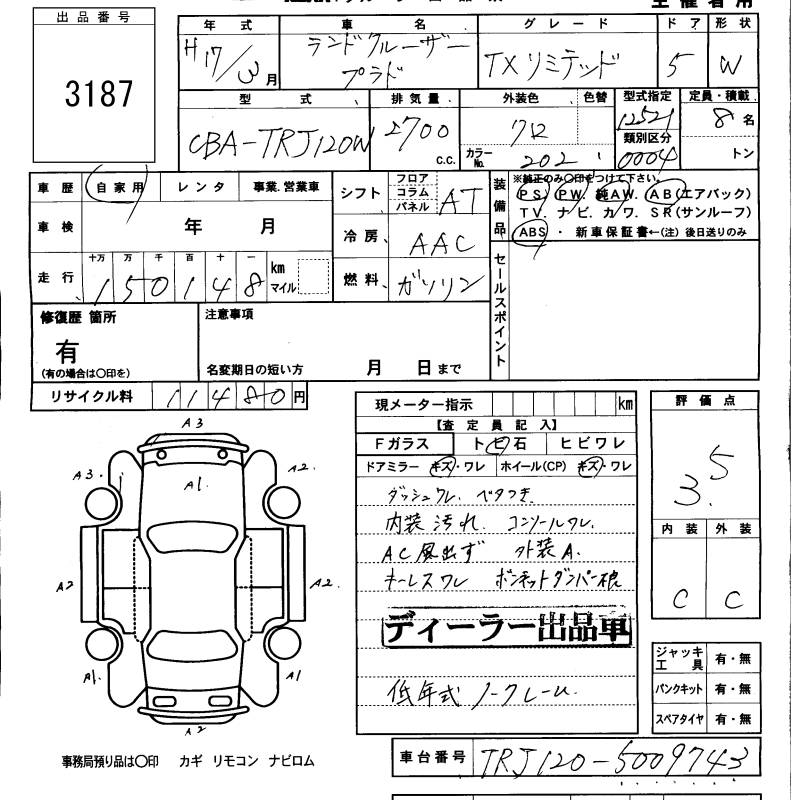 出品番号
3187
年式 車名 グレード ドア 形状
H17/3月 ランドクルーザープラド TXリミテッド 5 W
型式 排気量 外装色 色替 型式指定 定員・積載
CBA-TRJ120W 2700 c.c. クロ 12521 8名
類別区分
カラーNo. 202 0004 トン
車歴 自家用 レンタ 事業.営業車
シフト フロア コラム パネル AT
装備品 ※純正のみ〇印をつけて下さい。
PS. PW. 純AW. AB(エアバック)
TV. ナビ. カワ. SR(サンルーフ)
ABS ・ 新車保証書←(注)後日送りのみ
車検 年 月
冷房 AAC
走行 十万 万 千 百 十 一
150148 km マイル
燃料 ガソリン
セールスポイント
修復歴 箇所
有
(有の場合は〇印を)
注意事項
名変期日の短い方 月 日まで
リサイクル料 11480円
現メーター指示 km
【査定員記入】
Fガラス トビ石 ヒビワレ
ドアミラー キズ・ワレ ホイール(CP) キズ・ワレ
ダッシュワレ. ベタつき.
内装汚れ. コンソールワレ.
AC風出ず 外装A.
キーレスワレ ボンネットダンパー根
ディーラー出品車
低年式 ノークレーム.
評価点
3.5
内装 外装
C C
ジャッキ工具 有・無
パンクキット 有・無
スペアタイヤ 有・無
A3
A3. A1. A2.
A2 A2.
A1. A1
A2
事務局預り品は〇印 カギ リモコン ナビロム
車台番号 TRJ120-5009743